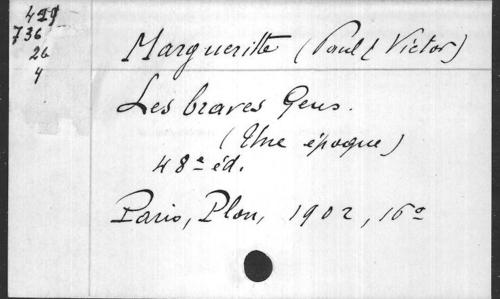 736
26
4
Margueritte (Paul & Victor)
Les braves Gens.
(Une époque)
48e éd.
Paris, Plon, 1902, 16o